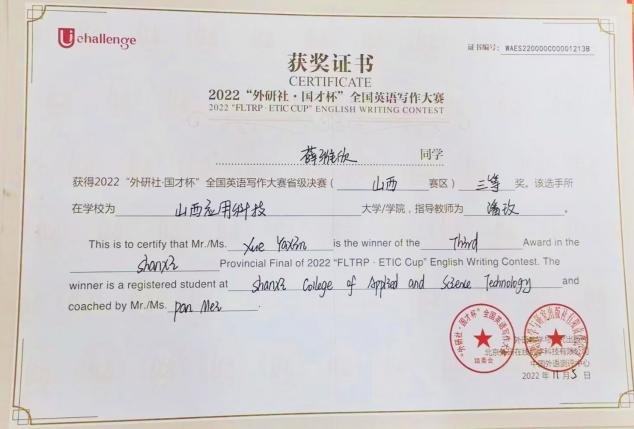 Uchallenge
证书编号: WAES2200000000001213B
获奖证书
CERTIFICATE
2022 “外研社·国才杯” 全国英语写作大赛
2022 “FLTRP · ETIC CUP” ENGLISH WRITING CONTEST
薛雅欣 同学
获得2022 “外研社·国才杯” 全国英语写作大赛省级决赛（山西 赛区）三等 奖。该选手所
在学校为 山西应用科技 大学/学院，指导教师为 潘玫 。
This is to certify that Mr./Ms. Xue Yaxin is the winner of the Third Award in the
ShanXi Provincial Final of 2022 “FLTRP · ETIC Cup” English Writing Contest. The
winner is a registered student at ShanXi College of Applied and Science Technology and
coached by Mr./Ms. pan Mei .
“外研社·国才杯”全国英语写作大赛
组委会
2022 年 11 月 5 日